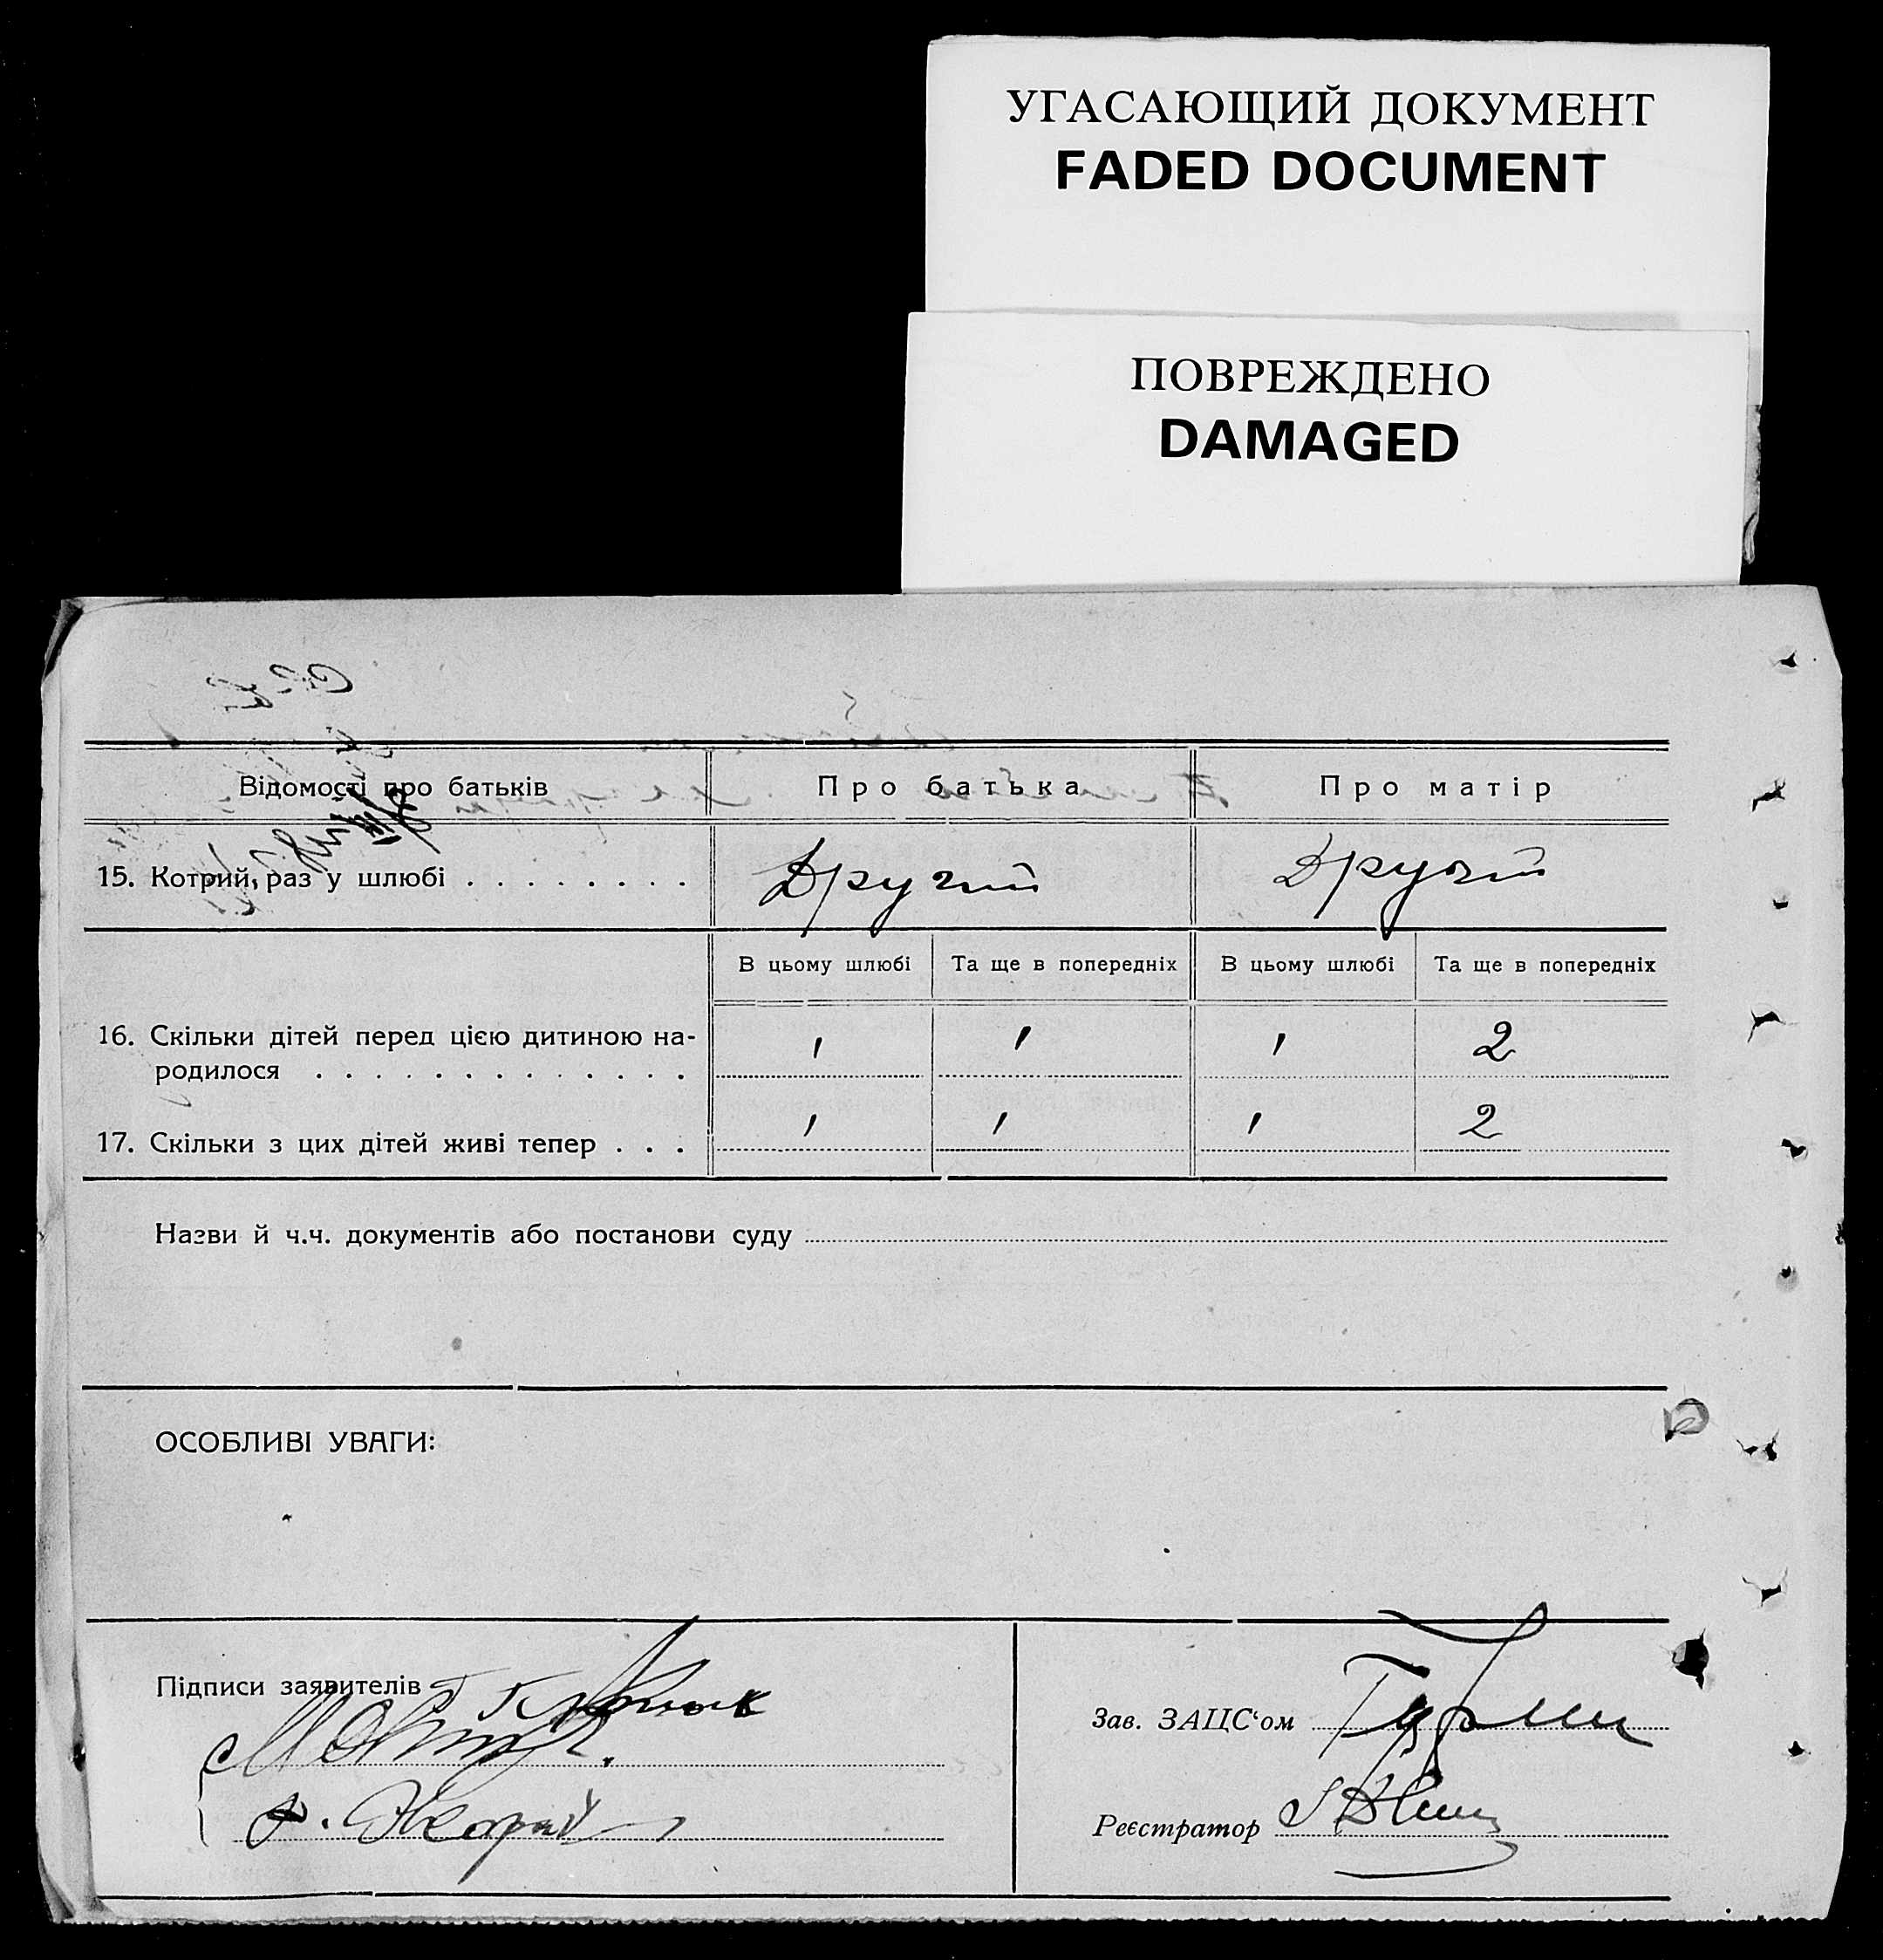 УГАСАЮЩИЙ ДОКУМЕНТ
FADED DOCUMENT
ПОВРЕЖДЕНО
DAMAGED
Відомості про батьків Про батька Про матір
15. Котрий раз у шлюбі . . . . . . . . Другий Другий
В цьому шлюбі Та ще в попередніх В цьому шлюбі Та ще в попередніх
16. Скільки дітей перед цією дитиною на-
родилося . . . . . . . . . . . . . . 1 1 1 2
17. Скільки з цих дітей живі тепер . . . 1 1 1 2
Назви й ч.ч. документів або постанови суду
ОСОБЛИВІ УВАГИ:
Підписи заявителів
Зав. ЗАЦС‘ом
Реєстратор